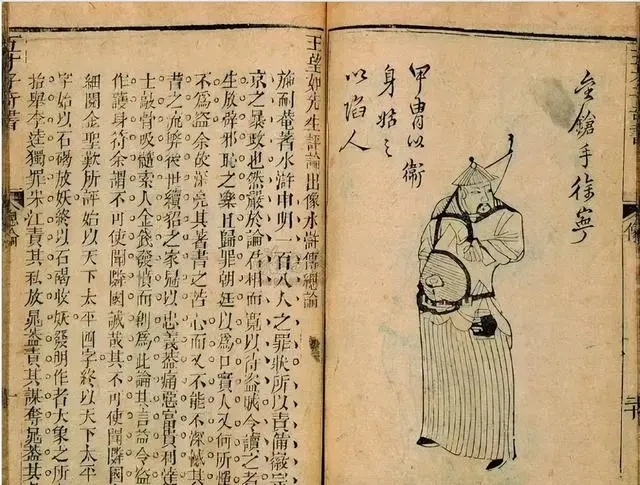 金鎗手徐寧
甲冑以衛
身姑之
以陷人
像
王望如先生評論出像水滸傳總論
施耐菴著水滸申明一百八人之罪狀所以責備徽宗
京之暴政也然嚴於論君相而寬以待盜賊令讀之者
生放辟邪之樂且歸罪朝廷以為口實人又何所憚
不為盜余故深亮其著書之苦心而又不能不深憾其
昔之流弊後世續貂之家冠以忠義蓋痛惡富貴利達
士敲骨吸髓索人金錢發憤而創為此論其言益令盜
作護身符余謂不可使聞隣國誠哉其不可使聞隣國
細閱金聖歎所評始以天下太平四字終以天下太平
字始以石碣放妖終以石碣收妖發明作者大象之所
抬舉李逵獨罪宋江責其私放晁蓋責其謀奪晁蓋其
五才子奇書
總論
一